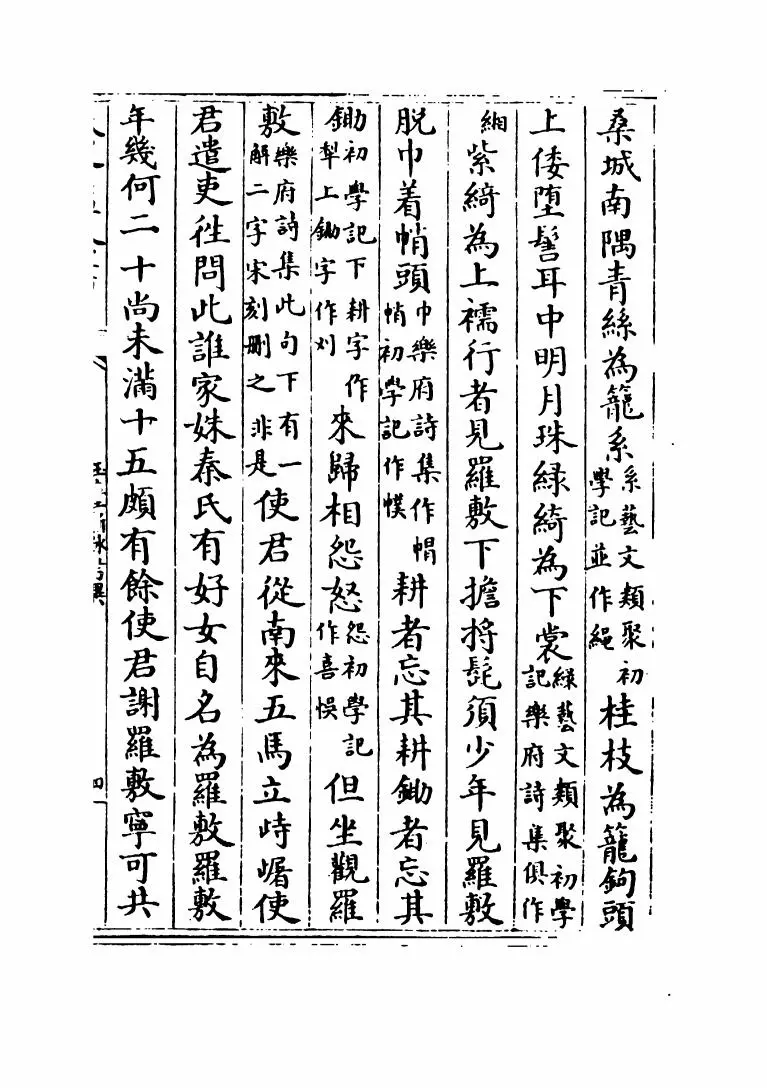 桑城南隅青絲為籠系系藝文類聚初學記並作繩桂枝為籠鉤頭
上倭墮髻耳中明月珠緑綺為下裳緑藝文類聚初學記樂府詩集俱作
緗紫綺為上襦行者見羅敷下擔捋髭須少年見羅敷
脱巾着帩頭巾樂府詩集作帽帩初學記作幞耕者忘其耕鋤者忘其
鋤初學記下耕字作犁上鋤字作刈來歸相怨怒怨初學記作喜悞但坐觀羅
敷樂府詩集此句下有一解二字宋刻删之非是使君從南來五馬立峙使
君遣吏徃問此誰家姝秦氏有好女自名為羅敷羅敷
年幾何二十尚未滿十五頗有餘使君謝羅敷寧可共
四